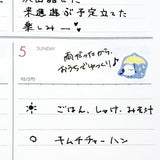 来週遊ぶ予定立てた
楽しみー
5 SUNDAY
雨だったから、
おうちでゆっくり♪
95/270
ごはん、しゃけ、みそ汁
キムチチャーハン